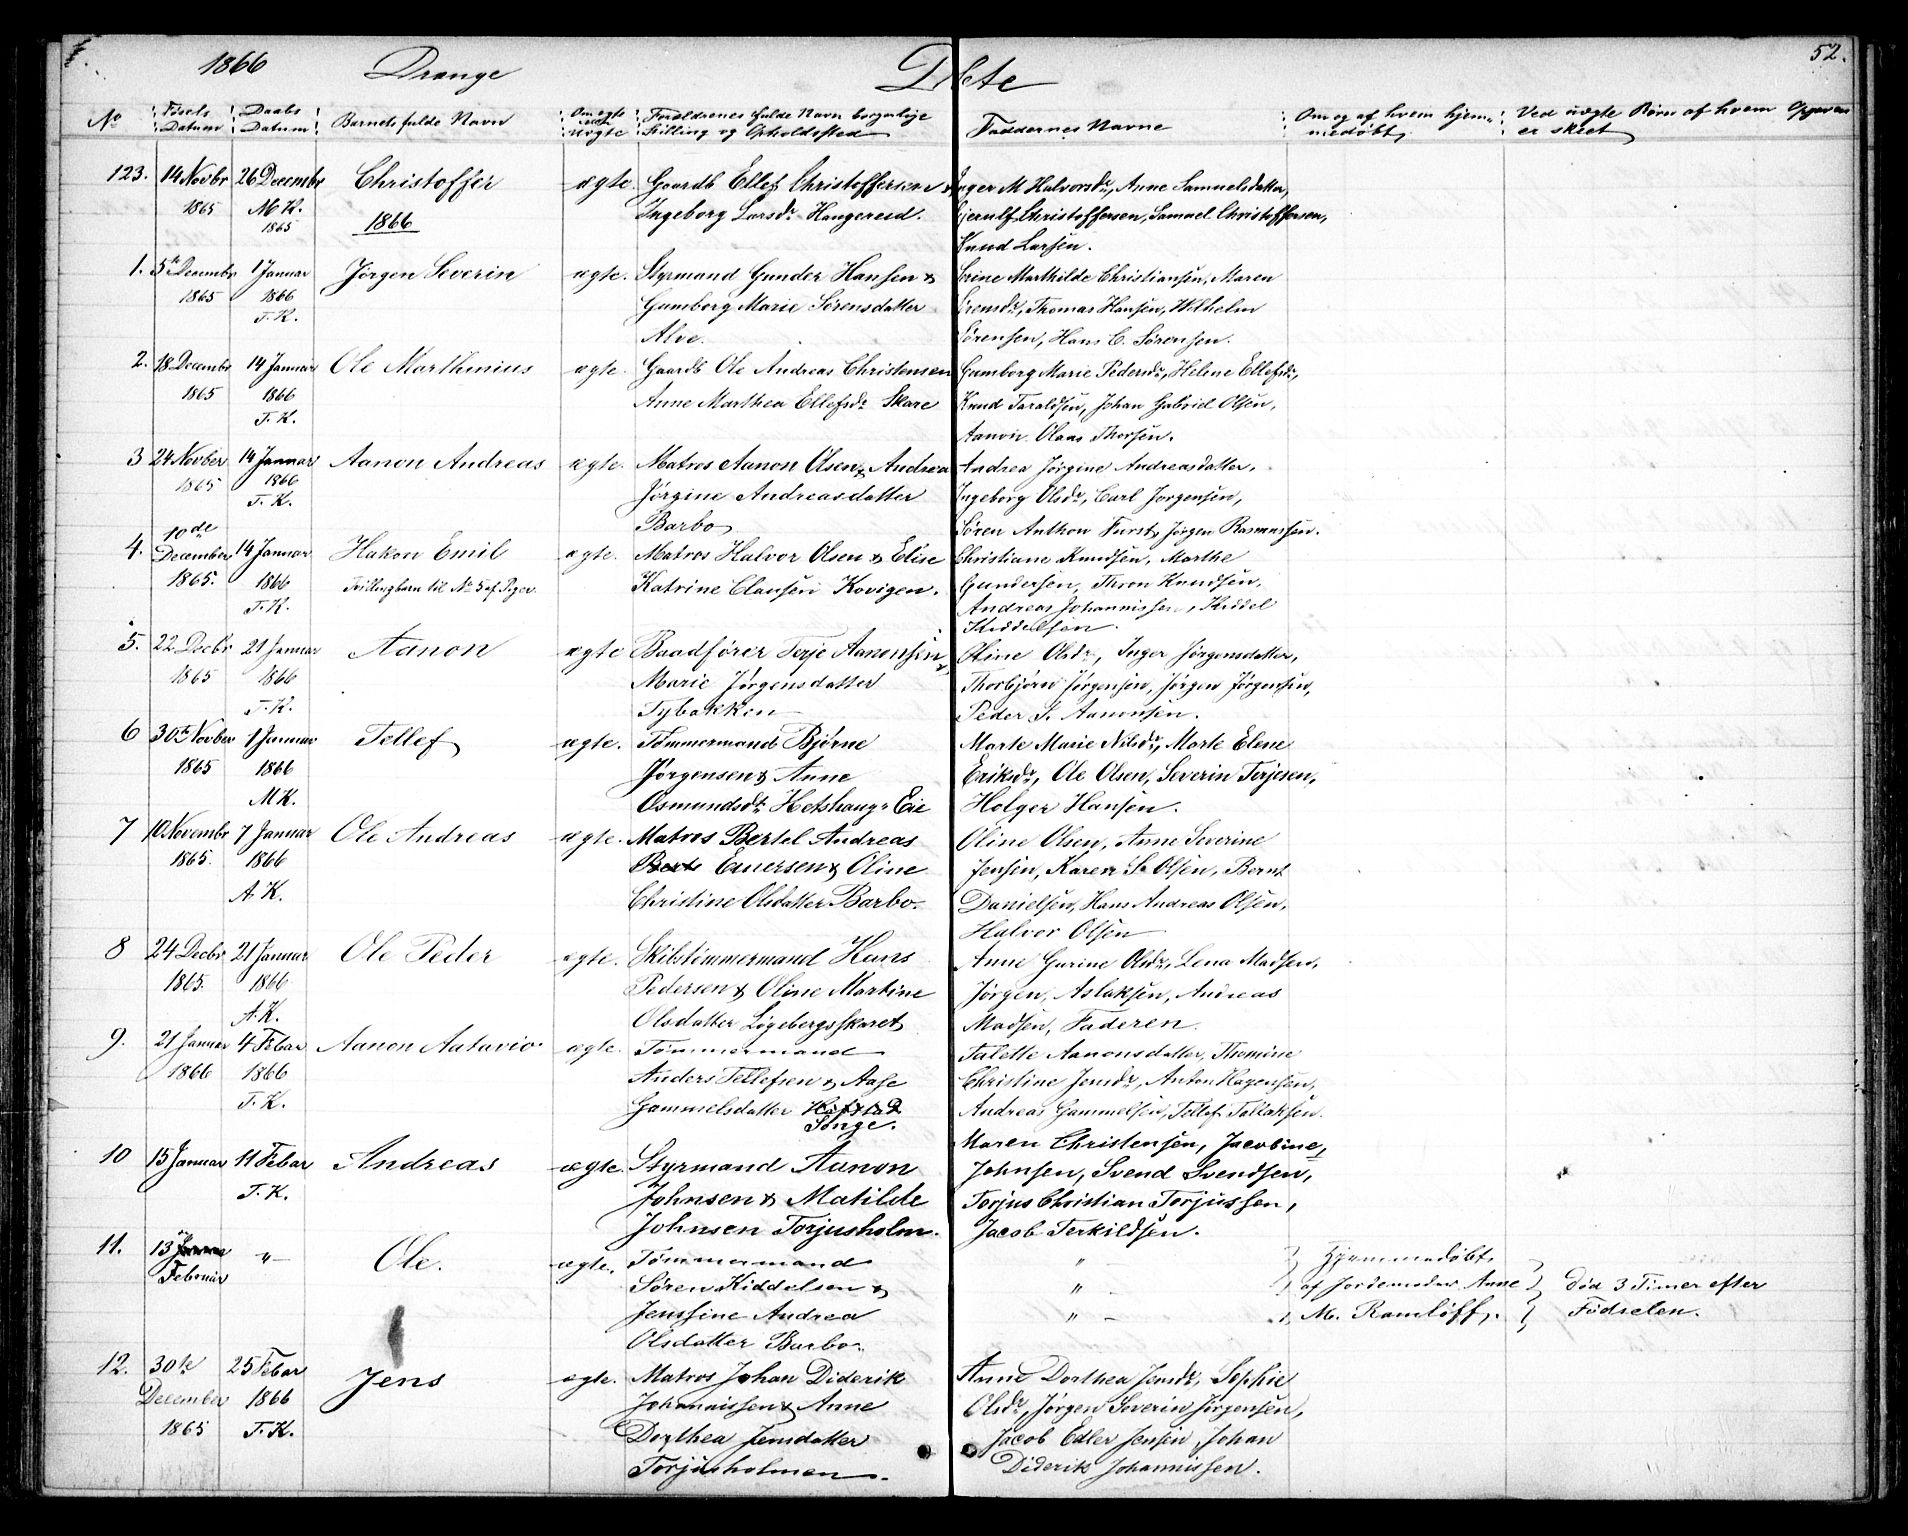 1866 Drenge Døbte 52.
No Føsels Datum Daabs Datum Barnets fulde Navn Om ægte eller uægte Forældrenes fulde Navn borgerlige Stilling og Opholdssted Faddernes Navne Om og af hvem hjemmedøbt Ved uægte Børn af hvem Opgaven er skeet
123. 14 Novbr 26 Decembr Christoffer ægte. Gaardb Ellef Christoffersen & Inger M Halvorsdr, Anne Samuelsdatter,
1865 M K. 1866 Ingeborg Larsdr Hangeraid. Gjerulf Christoffersen, Samuel Christoffersen,
1865 Knud Larsen.
1. 5te Decembr 1 Januar Jørgen Severin ægte. Styrmand Gunder Hansen & Serine Marthilde Christiansen, Maren
1865 1866 Gumborg Marie Sørensdatter Sørensdr, Thomas Hansen, Wilhelm
T. K. Alve. Sørensen, Hans C. Sørensen.
2. 18 Decembr 14 Januar Ole Marthinius ægte. Gaardb Ole Andreas Christensen Gumborg Marie Pedersdr, Helene Ellefsdr,
1865 1866 Anne Marthea Ellefsdr Skare Knud Taraldsen, Johan Gabriel Olsen,
T. K. Aanon Olaus Thorsen.
3 24 Novber 14 Januar Aanon Andreas ægte. Matros Aanon Olsen & Andrea Andrea Jørgine Andreasdatter,
1865 1866 Jørgine Andreasdatter Ingeborg Olsdr, Carl Jorgensen,
T. K. Barbo Søren Anthon Furst, Jørgen Rasmussen.
10de
4. December 14 Januar Hakon Emil ægte. Matros Halvor Olsen & Elise Christiane Knudsen, Marthe
1865. 1866 Tvillingbarn til No 5 af Piger. Katrine Clausen Kovigen. Gundersen, Thron Knudsen,
T. K. Andreas Johannissen, Kiddel
Kiddelsen.
5. 22 Decbr 21 Januar Aanon ægte Baadfører Terje Aanonsen & Oline Olsdr, Inger Jørgensdatter,
1865 1866 Marie Jørgensdatter Thorbjørn Jørgensen, Jørgen Jørgensen,
T. K. Tybakken Peder S. Aanonsen.
6 30te Novber 1 Januar Tellef ægte. Tømmermand Bjørne Marte Marie Nilsdr, Marte Elene
1865 1866 Jørgensen & Anne Eriksdr, Ole Olsen, Severin Terjesen,
M K. Osmundsdtr Hetshaug Eie Holger Hansen.
7 10 Novembr 7 Januar Ole Andreas ægte. Matros Bertel Andreas Oline Olsen, Anne Severine
1865. 1866 Enersen & Oline Jensen, Karen S. Olsen, Bernt
A. K. Christine Olsdatter Barbo. Danielsen, Hans Andreas Olsen,
Halvor Olsen
8 24 Decbr 21 Januar Ole Peder ægte. Skibstømmermand Hans Anne Gurine Olsdr, Lena Madsen,
1865. 1866 Pedersen & Oline Martine Jørgen Aslaksen, Andreas
A. K. Olsdatter Løgebergsskaret Madsen, Faderen.
9. 21 Januar 4 Febar Aanon Aatavio ægte. Tømmermand Talette Aanonsdatter, Thomine
1866 1866 Anders Tellefsen & Aase Christine Jensdr, Anton Hagensen,
T. K. Gammelsdatter Songe. Andreas Gammelsen, Tellef Tellaksen.
10 15 Januar 11 Febar Andreas ægte. Styrmand Aanon Maren Christensen, Jacobine
T. K. Johnsen & Matilde Johnsen, Svend Svendsen,
Johnsen Torjusholm. Torjus Christian Torjussen,
Jacob Terkildsen.
11. 13 Februar " Ole. ægte. Tømmermand " Hjemmedøbt
Søren Kiddelsen & " af Jordemoder Anne Død 3 Timer efter
Jensine Andrea " M. Ramløff. Fødselen.
Olsdatter Barbo.
12. 30te 25 Febar Jens ægte. Matros Johan Diderik Anne Dorthea Jensdr, Sophie
December 1866 Johannissen & Anne Olsdr, Jørgen Severin Jørgensen,
1865 T. K. Dorthea Jensdatter Jacob Edler Jensen, Johan
Torjusholmen. Diderik Johannissen.